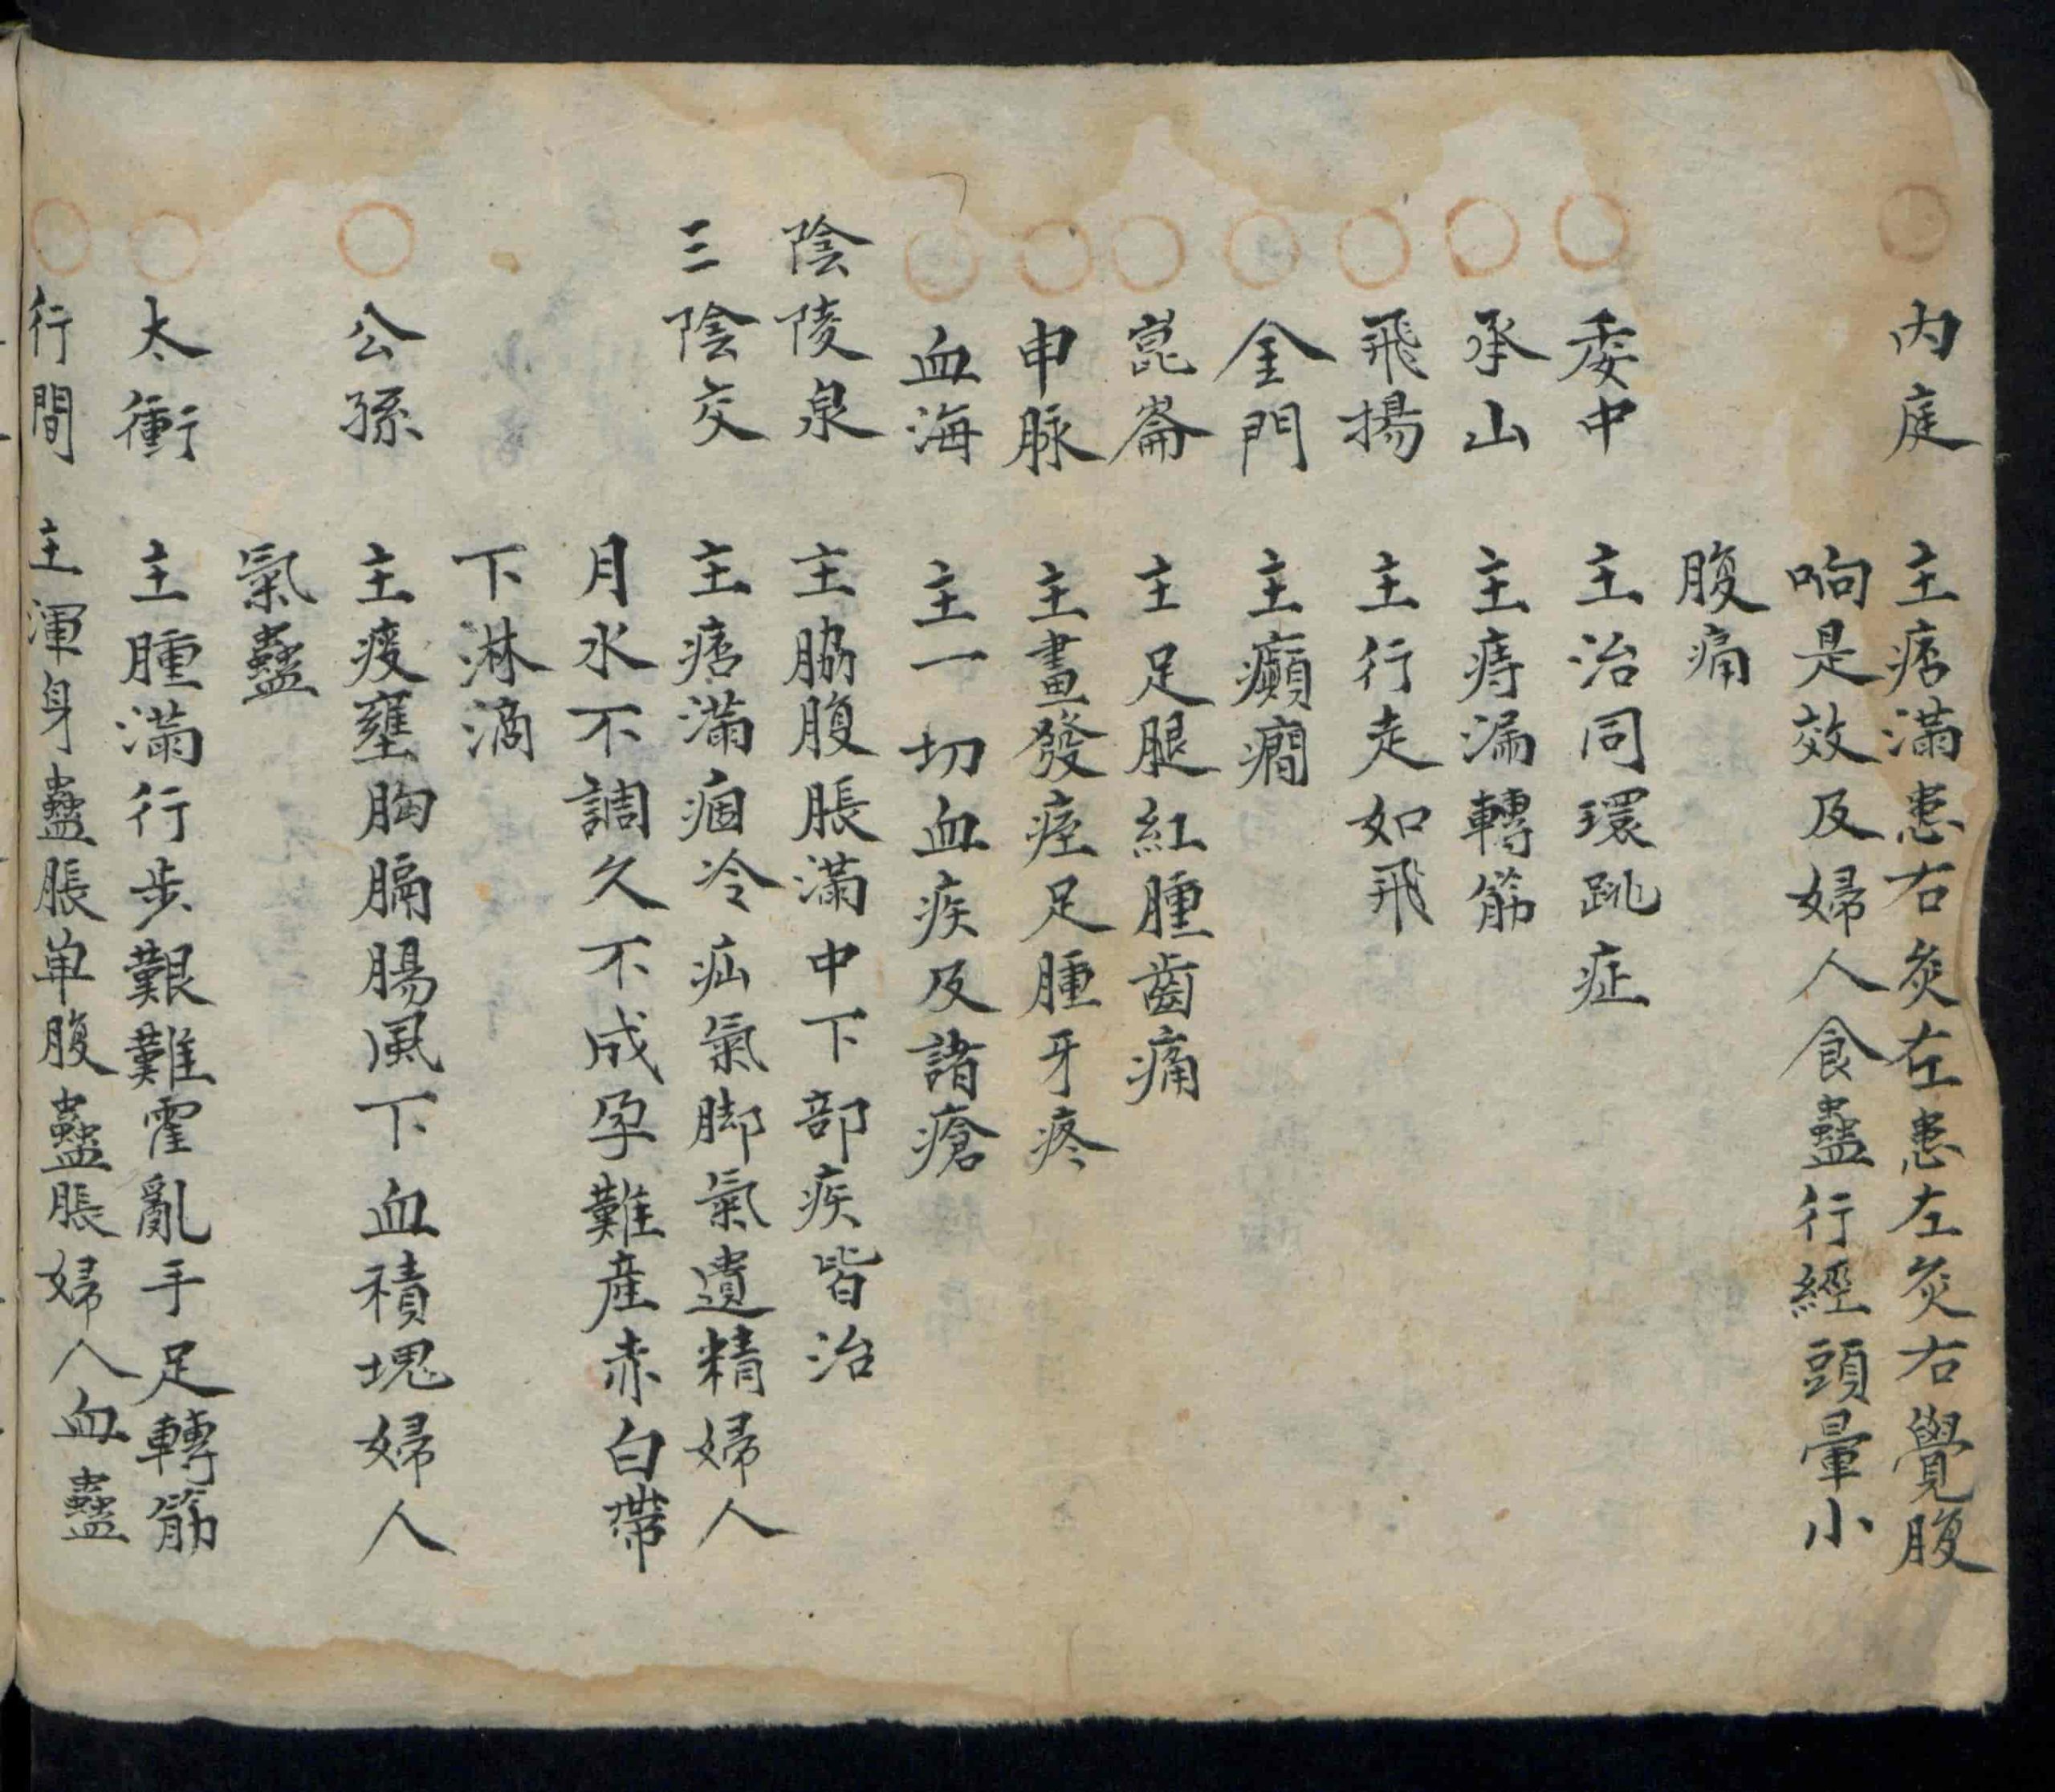 內庭 主痞滿患右灸左患左灸右覺腹
响是效及婦人食蠱行經頭暈小
腹痛
委中 主治同環跳症
承山 主痔漏轉筋
飛揚 主行走如飛
金門 主癲癇
崑崙 主足腿紅腫齒痛
申脉 主晝發痓足腫牙疼
血海 主一切血疾及諸瘡
陰陵泉 主脇腹脹滿中下部疾皆治
三陰交 主痞滿痼冷疝氣脚氣遺精婦人
月水不調久不成孕難產赤白帶
下淋滴
公孫 主痰壅胸膈腸風下血積塊婦人
氣蠱
太衝 主腫滿行步艱難霍亂手足轉筋
行間 主渾身蠱脹单腹蠱脹婦人血蠱